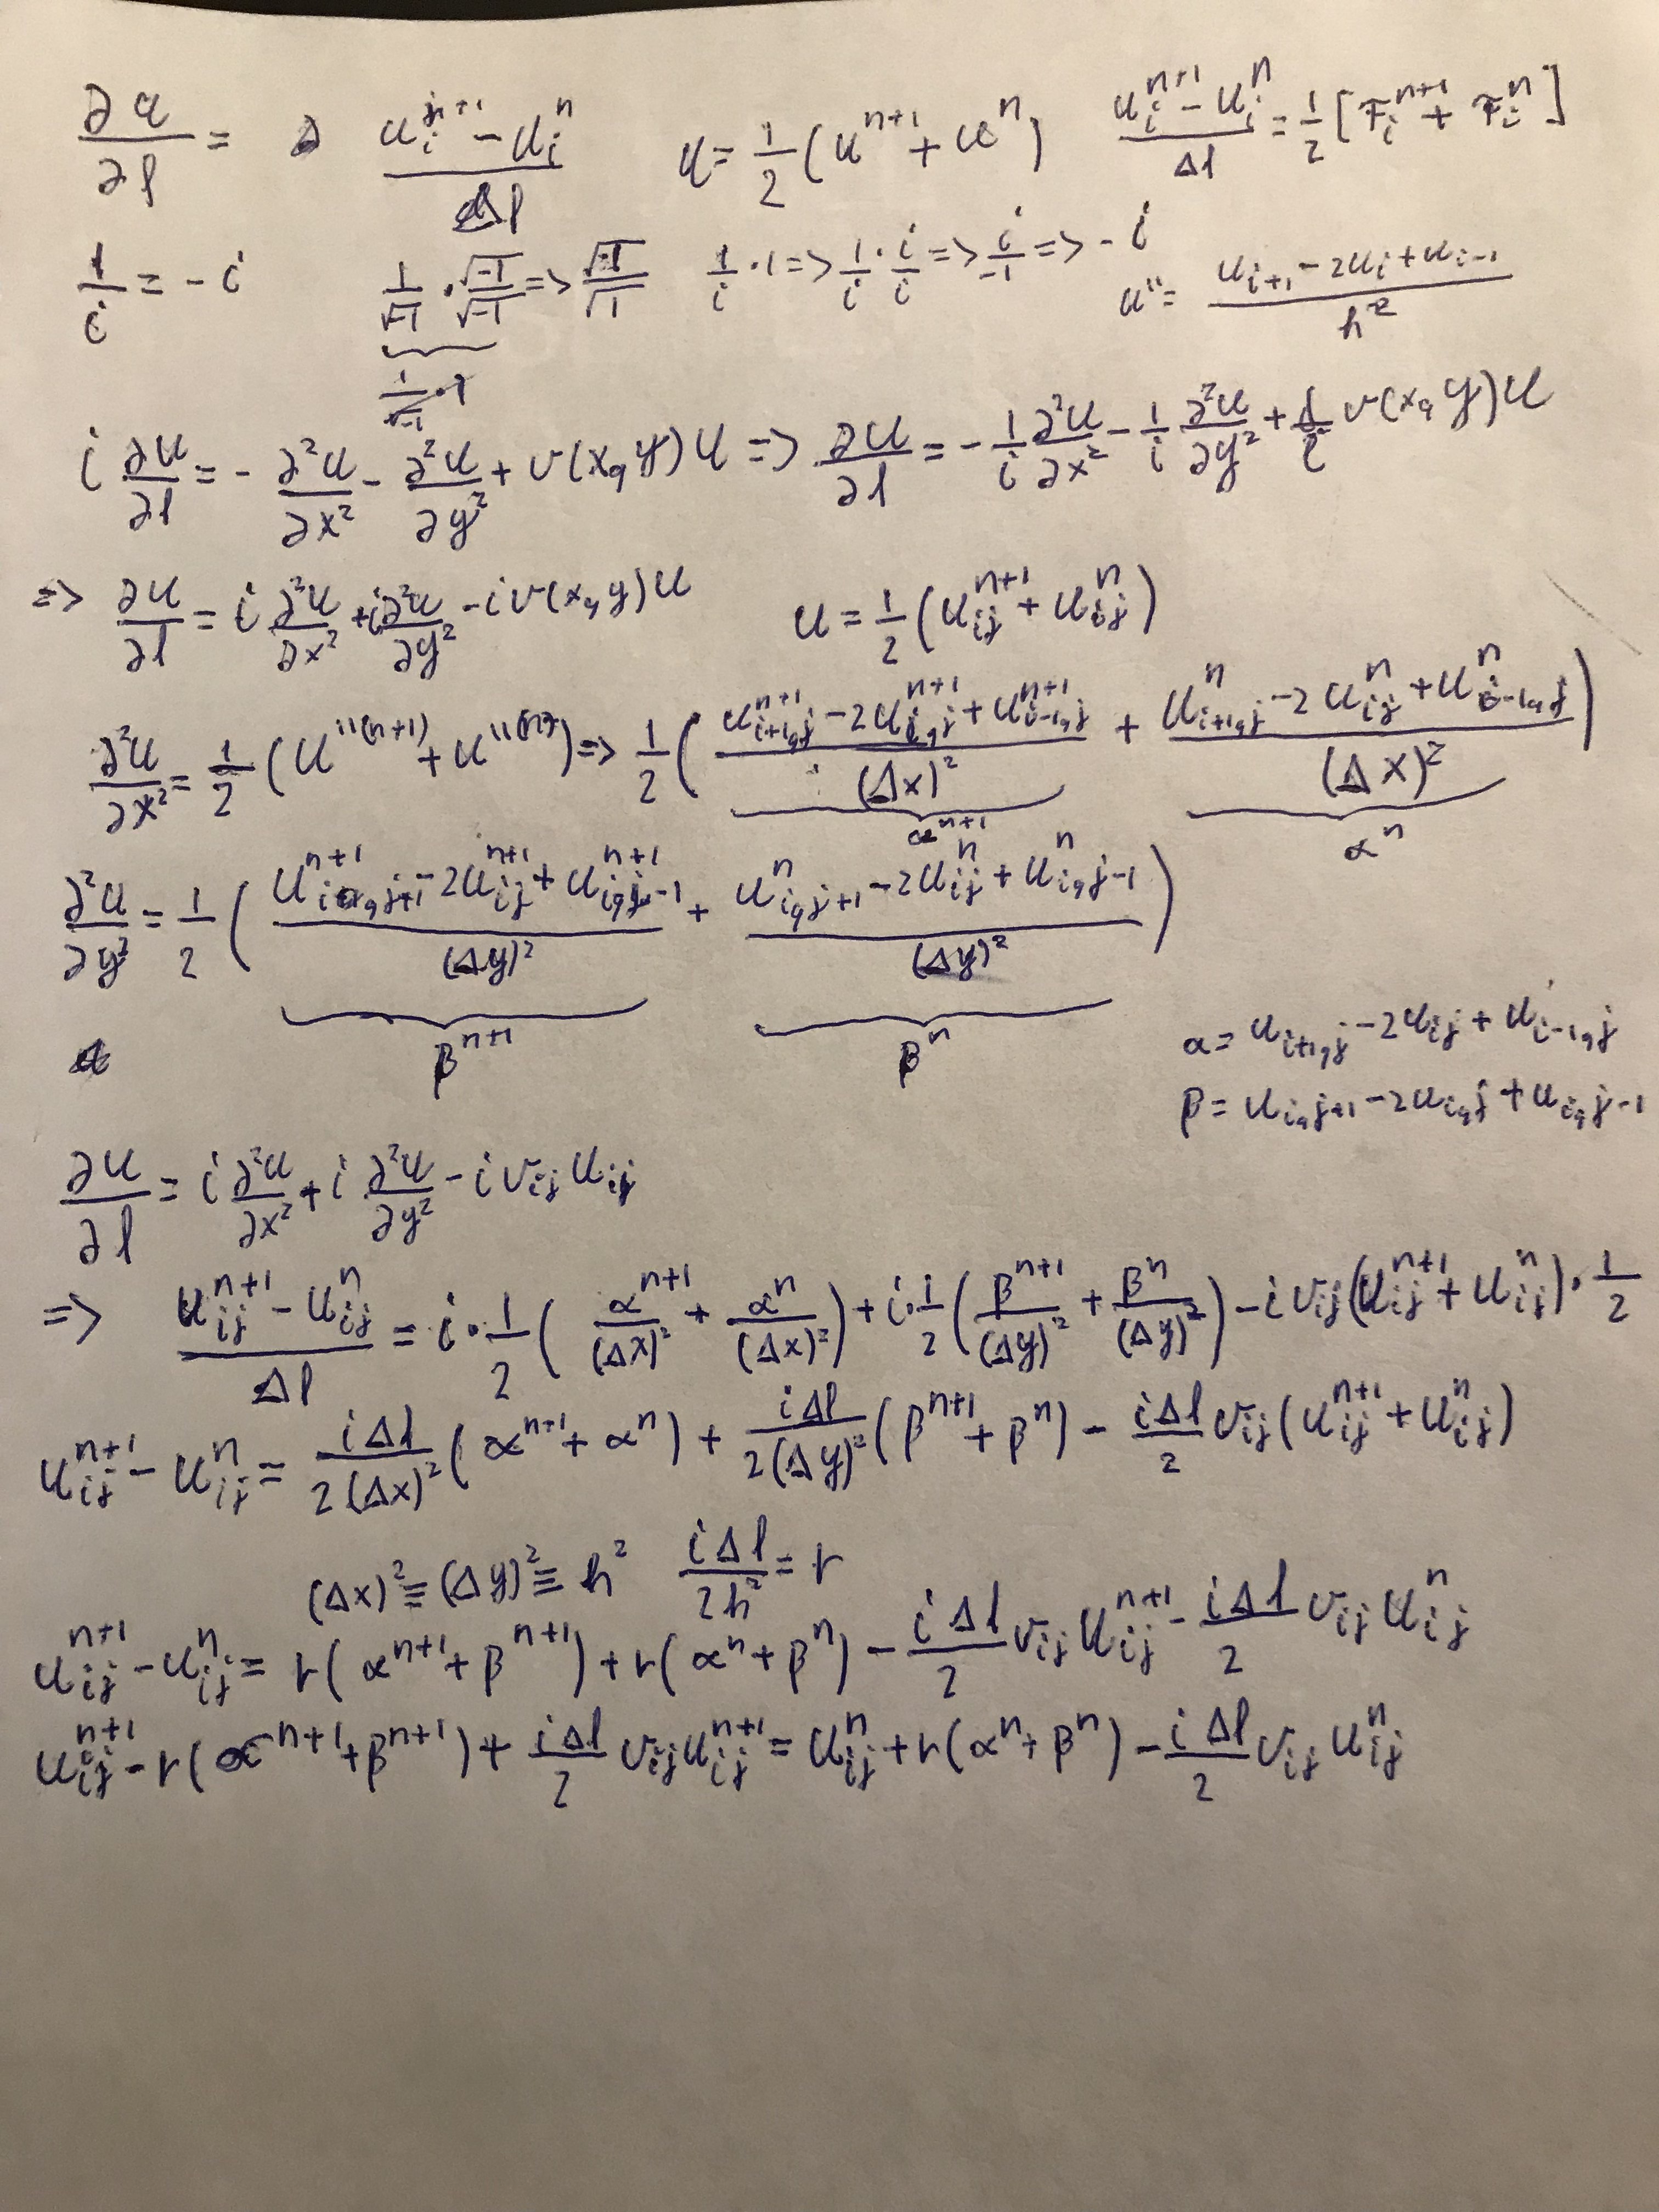 ∂u/∂t = (u_i^{n+1} - u_i^n)/Δt   u = 1/2 (u^{n+1} + u^n)   (u_i^{n+1} - u_i^n)/Δt = 1/2 [F_i^{n+1} + F_i^n]
1/i = -i   1/√-1 · √-1/√-1 => √-1/√1   1/i · 1 => 1/i · i/i => i/-1 => -i   u'' = (u_{i+1} - 2u_i + u_{i-1})/h^2
1/√-1 · 1
i ∂u/∂t = - ∂²u/∂x² - ∂²u/∂y² + v(x,y)u => ∂u/∂t = - 1/i ∂²u/∂x² - 1/i ∂²u/∂y² + 1/i v(x,y)u
=> ∂u/∂t = i ∂²u/∂x² + i ∂²u/∂y² - i v(x,y)u   u = 1/2 (u_{ij}^{n+1} + u_{ij}^n)
∂²u/∂x² = 1/2 (u''^{(n+1)} + u''^{(n)}) => 1/2 ( (u_{i+1,j}^{n+1} - 2u_{i,j}^{n+1} + u_{i-1,j}^{n+1})/(Δx)² + (u_{i+1,j}^n - 2u_{ij}^n + u_{i-1,j}^n)/(Δx)² )
α^{n+1}   α^n
∂²u/∂y² = 1/2 ( (u_{i,j+1}^{n+1} - 2u_{ij}^{n+1} + u_{i,j-1}^{n+1})/(Δy)² + (u_{i,j+1}^n - 2u_{ij}^n + u_{i,j-1}^n)/(Δy)² )
β^{n+1}   β^n
α = u_{i+1,j} - 2u_{ij} + u_{i-1,j}
β = u_{i,j+1} - 2u_{i,j} + u_{i,j-1}
∂u/∂t = i ∂²u/∂x² + i ∂²u/∂y² - i v_{ij} u_{ij}
=> (u_{ij}^{n+1} - u_{ij}^n)/Δt = i · 1/2 ( α^{n+1}/(Δx)² + α^n/(Δx)² ) + i · 1/2 ( β^{n+1}/(Δy)² + β^n/(Δy)² ) - i v_{ij} (u_{ij}^{n+1} + u_{ij}^n) · 1/2
u_{ij}^{n+1} - u_{ij}^n = iΔt/2(Δx)² (α^{n+1} + α^n) + iΔt/2(Δy)² (β^{n+1} + β^n) - iΔt/2 v_{ij} (u_{ij}^{n+1} + u_{ij}^n)
(Δx)² ≡ (Δy)² ≡ h²   iΔt/2h² = r
u_{ij}^{n+1} - u_{ij}^n = r(α^{n+1} + β^{n+1}) + r(α^n + β^n) - iΔt/2 v_{ij} u_{ij}^{n+1} - iΔt/2 v_{ij} u_{ij}^n
u_{ij}^{n+1} - r(α^{n+1} + β^{n+1}) + iΔt/2 v_{ij} u_{ij}^{n+1} = u_{ij}^n + r(α^n + β^n) - iΔt/2 v_{ij} u_{ij}^n